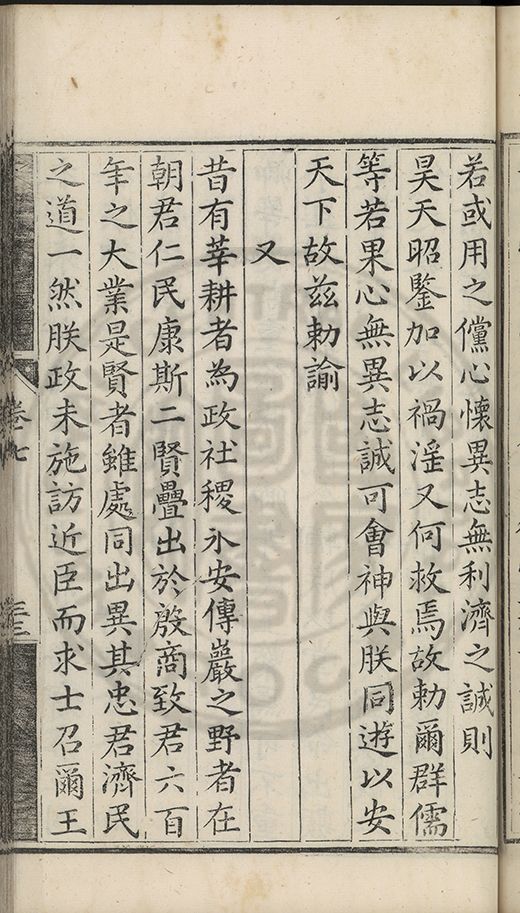 若或用之儻心懷異志無利濟之誠則
昊天昭鑒加以禍淫又何救焉故勅爾群儒
等若果心無異志誠可會神與朕同遊以安
天下故茲勅諭
又
昔有莘耕者為政社稷永安傳巖之野者在
朝君仁民康斯二賢疊出於殷商致君六百
年之大業是賢者雖處同出異其忠君濟民
之道一然朕政未施訪近臣而求士召爾王
卷七
三